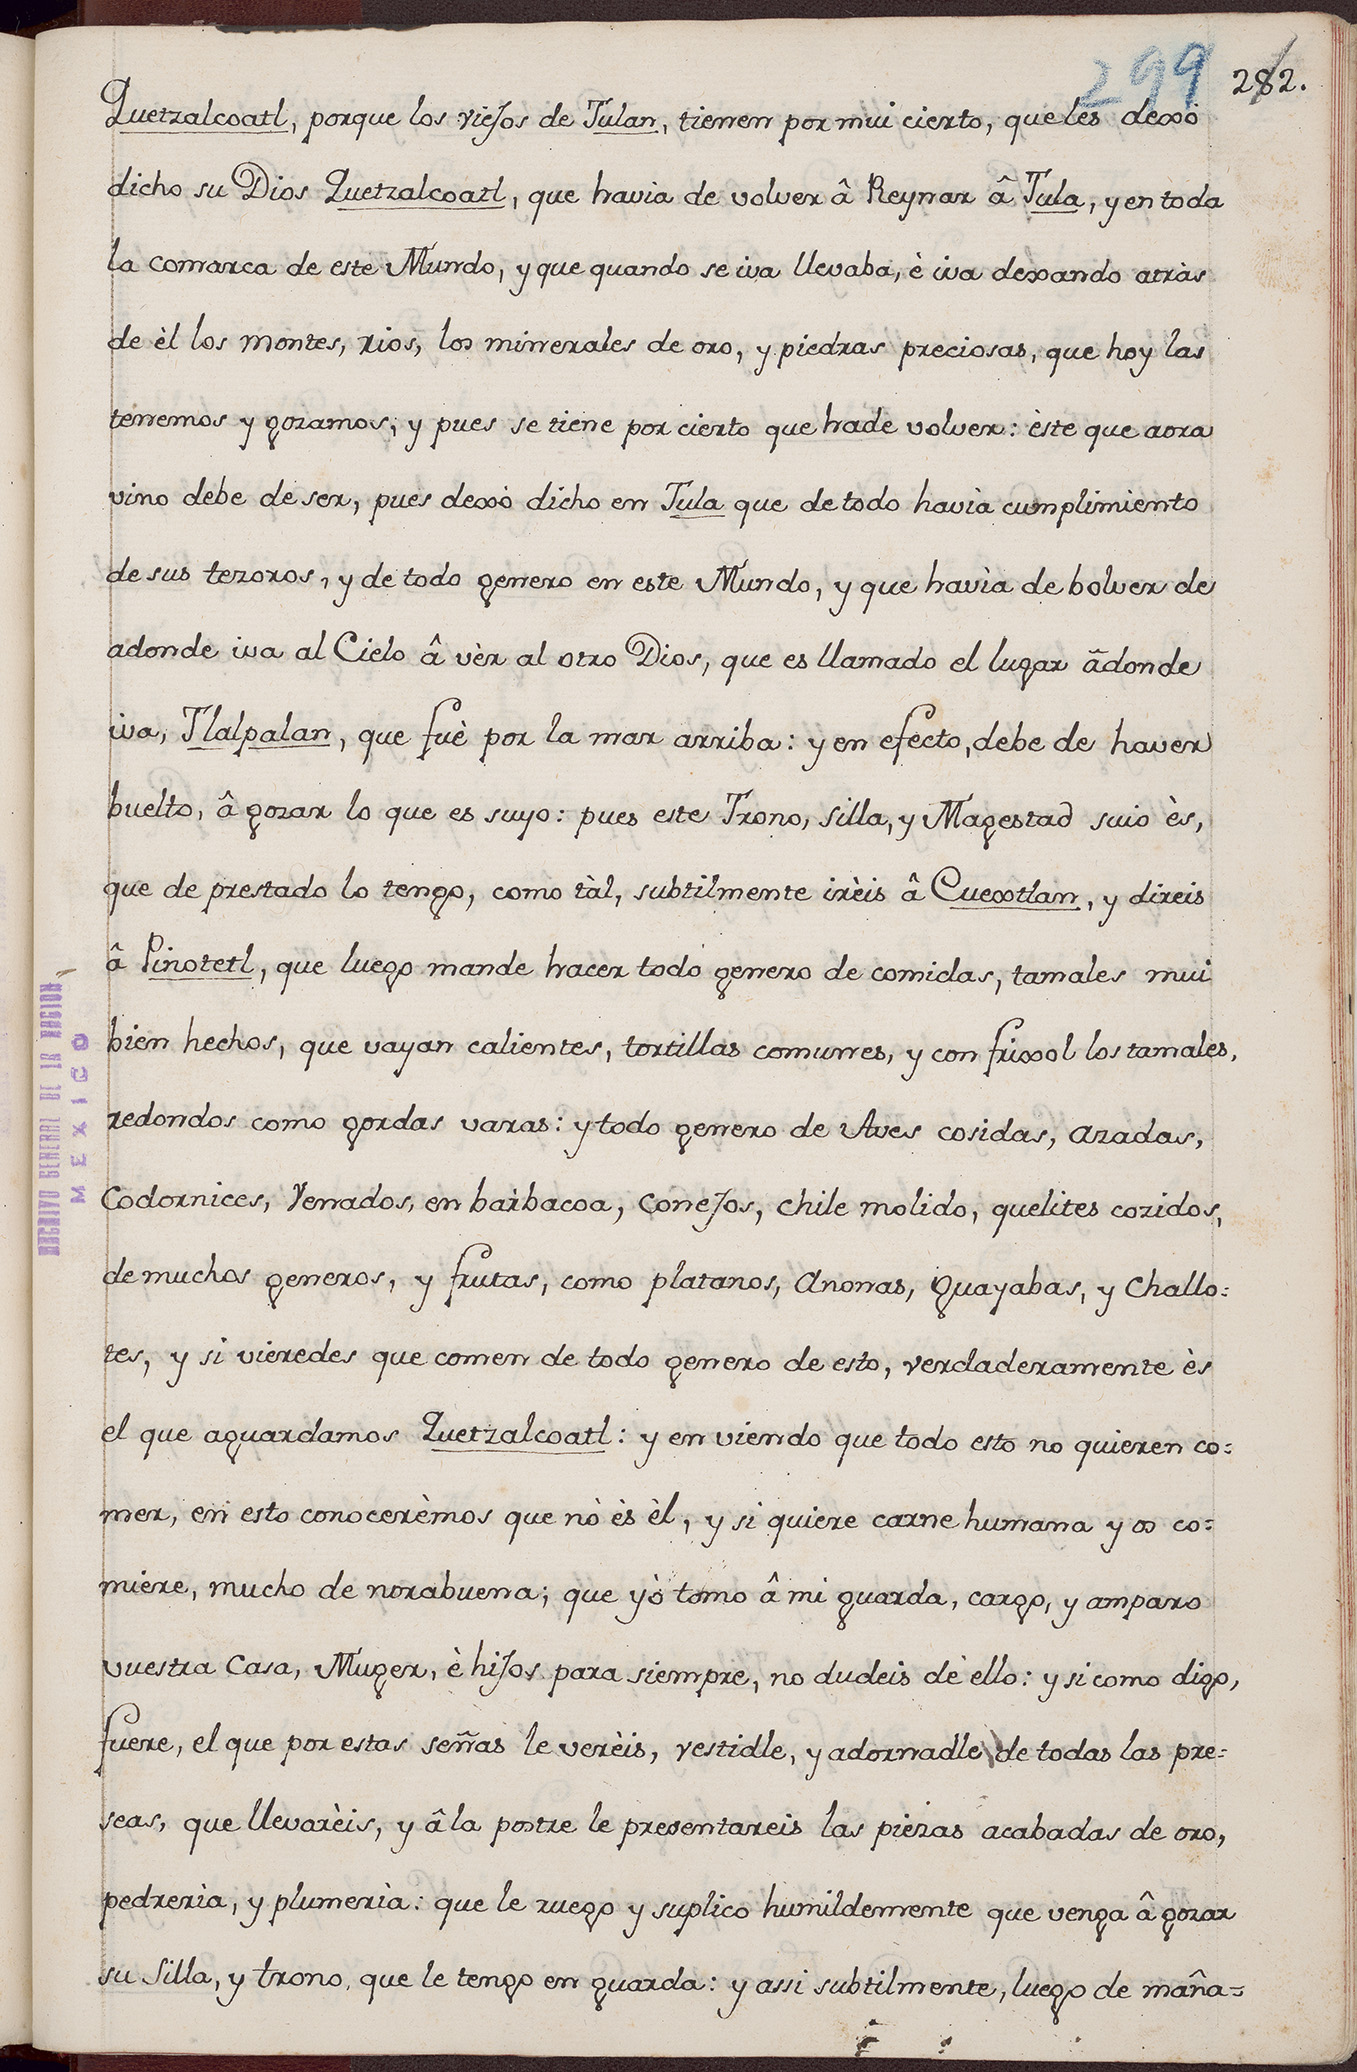 299 282.
Quetzalcoatl, porque los viejos de Tulan, tienen por mui cierto, que les dexò
dicho su Dios Quetzalcoatl, que havia de volver â Reynar â Tula, y en toda
la comarca de este Mundo, y que quando se iva llevaba, è iva dexando atràs
de èl los montes, rios, los minerales de oro, y piedras preciosas, que hoy las
tenemos y gozamos, y pues se tiene por cierto que ha de volver: èste que aora
vino debe de ser, pues dexò dicho en Tula que de todo havìa cumplimiento
de sus tezoros, y de todo genero en este Mundo, y que havìa de bolver de
adonde iva al Cielo â vèr al otro Dios, que es llamado el lugar âdonde
iva, Tlalpalan, que fuè por la mar arriba: y en efecto, debe de haver
buelto, â gozar lo que es suyo: pues este Trono, silla, y Magestad suio ès,
que de prestado lo tengo, como tàl, subtilmente irèis â Cuextlan, y direis
â Pinotetl, que luego mande hacer todo genero de comidas, tamales mui
bien hechos, que vayan calientes, tortillas comunes, y con frixol los tamales,
redondos como gordas varas: y todo genero de Aves cosidas, azadas,
Codornices, Venados, en barbacoa, conejos, chile molido, quelites cozidos,
de muchos generos, y frutas, como platanos, Anonas, Guayabas, y Challo=
tes, y si vieredes que comen de todo genero de esto, verdaderamente ès
el que aguardamos Quetzalcoatl: y en viendo que todo esto no quieren co=
mer, en esto conocerèmos que nò ès èl, y si quiere carne humana y os co=
miere, mucho de norabuena; que yò tomo â mi guarda, cargo, y amparo
vuestra Casa, Muger, è hijos para siempre, no dudeis de ello: y si como digo,
fuere, el que por estas señas le verèis, vestidle, y adornadle de todas las pre=
seas, que llevarèis, y â la postre le presentareis las piezas acabadas de oro,
pedrerìa, y plumerìa: que le ruego y suplico humildemente que venga â gozar
su Silla, y trono, que le tengo en guarda: y assi subtilmente, luego de maña=
ARCHIVO GENERAL DE LA NACION,
MEXICO